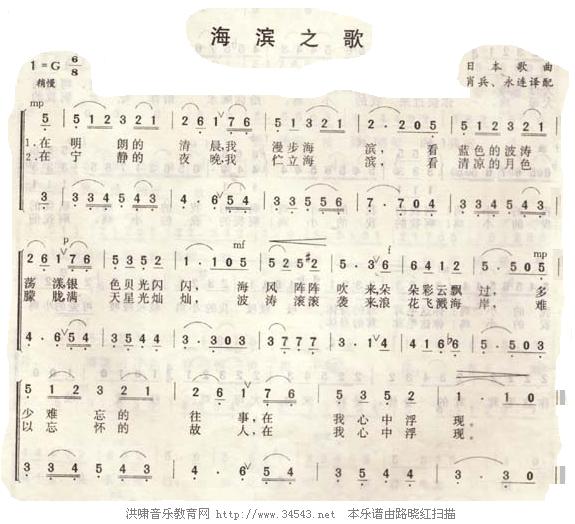 海滨之歌
1=G 6/8
日本歌曲
稍慢
肖兵、永连译配
mp
5 5 1 2 3 2 1 2 6 1 7 6 5 1 3 2 1 2 · 2 0 5 5 1 2 3 2 1
1.在 明 朗的 清 晨,我 漫步海 滨, 看 蓝色的波涛
2.在 宁 静的 夜 晚,我 伫立海 滨, 看 清凉的月色
3 3 4 5 4 3 4 · 6 5 4 3 3 5 5 6 7 · 7 0 4 3 3 4 5 4 3
p mf f mp
2 6 1 7 6 5 1 3 2 1 1 · 1 0 3
荡漾,银 色贝光闪 闪, 海 风阵阵 吹来朵 朵彩云飘 过, 多
朦胧,满 天星光灿 灿, 波 涛滚滚 袭来浪 花飞溅海 岸, 难
5 1 2 3 2 1 2 6 1 7 6 5 3 5 2 2 1 · 1 0
少难忘的 往 事,在 我心中浮 现。
以忘怀的 故 人,在 我心中浮 现。
3 3 4 5 4 3 4 · 6 5 4 3 5 4 4 3 · 3 0
洪啸音乐教育网 http://www.34543.net 本乐谱由路晓红扫描